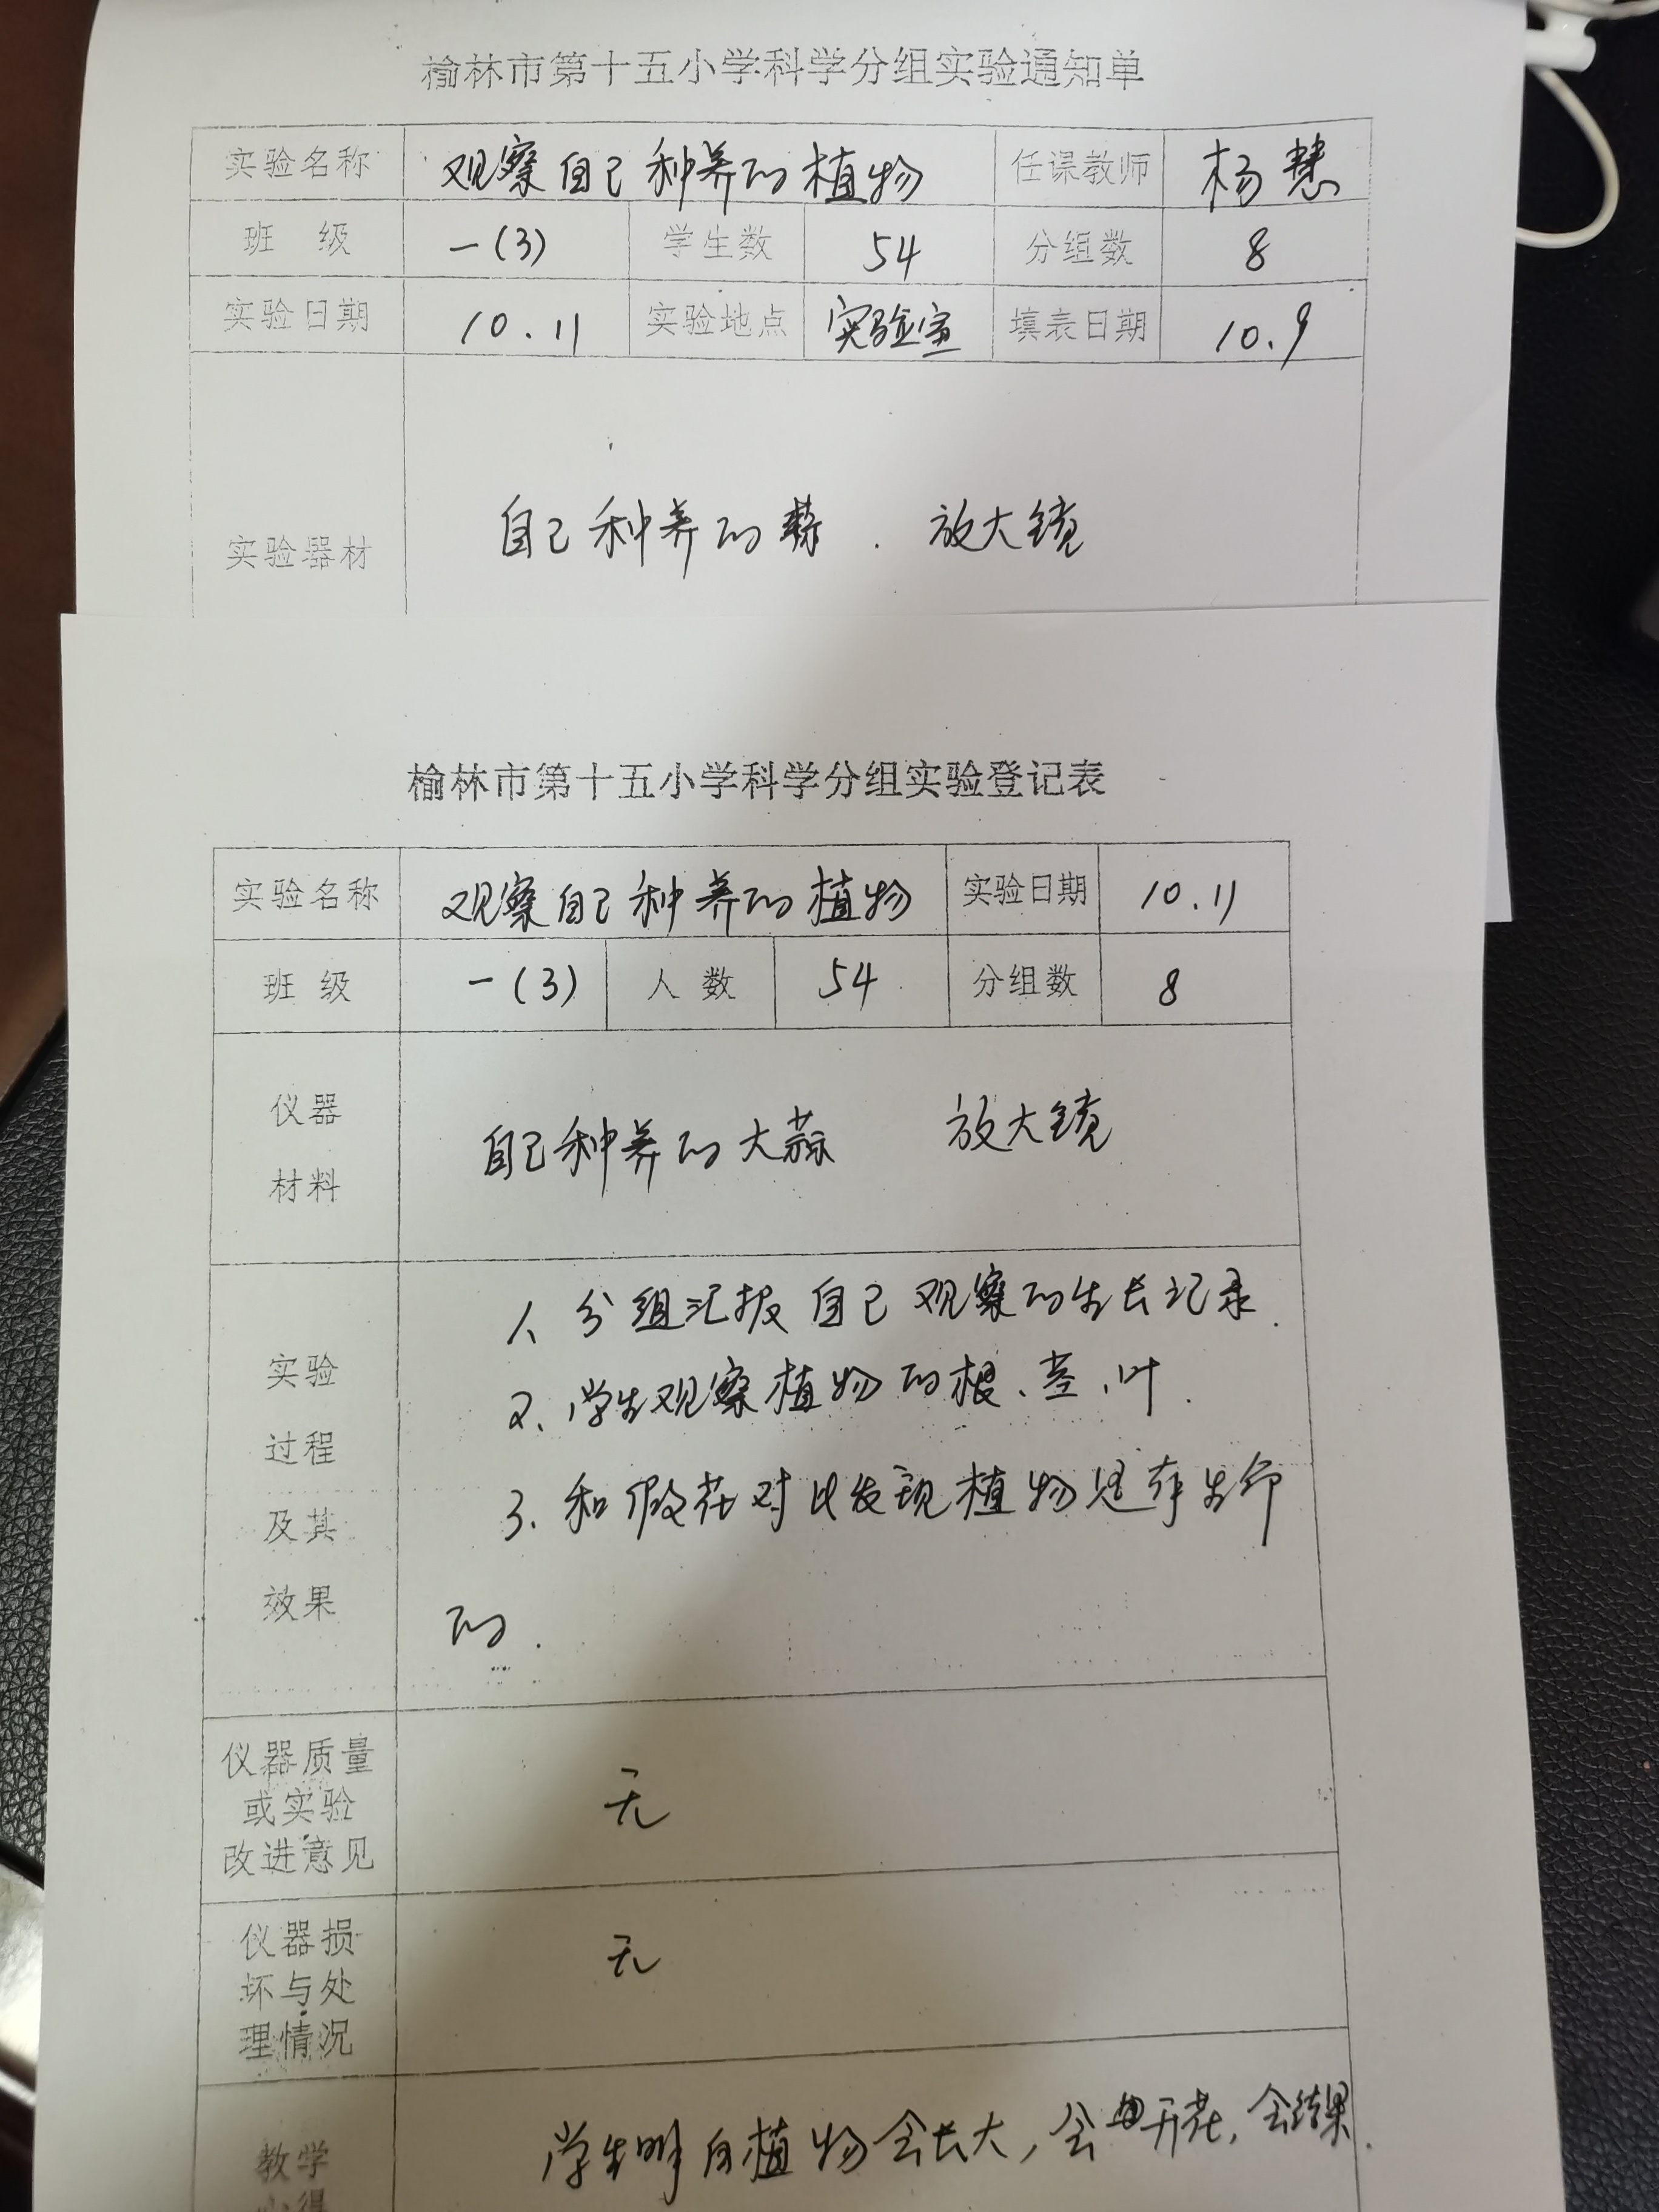 榆林市第十五小学科学分组实验通知单
实验名称 观察自己种养的植物 任课教师 杨慧
班 级 一(3) 学生数 54 分组数 8
实验日期 10.11 实验地点 实验室 填表日期 10.9
实验器材 自己种养的蒜 . 放大镜
榆林市第十五小学科学分组实验登记表
实验名称 观察自己种养的植物 实验日期 10.11
班 级 一(3) 人 数 54 分组数 8
仪器
材料
自己种养的大蒜 放大镜
实验
过程
及其
效果
1、分组汇报自己观察的生长记录.
2、学生观察植物的根、茎、叶.
3、和假花对比发现植物是有生命
的.
仪器质量
或实验
改进意见
无
仪器损
坏与处
理情况
无
教学
心得
学生明白植物会长大,会开花,会结果.